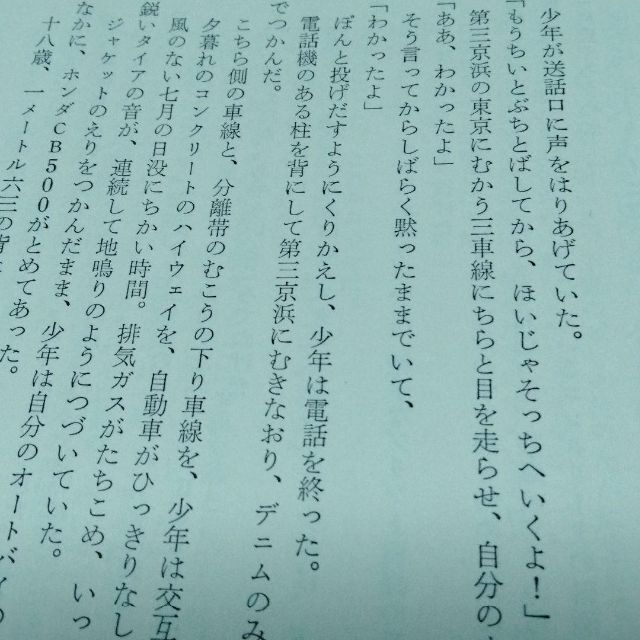 少年が送話口に声をはりあげていた。
「もうちいとぶちとばしてから、ほいじゃそっちへいくよ！」
第三京浜の東京にむかう三車線にちらと目を走らせ、自分の
「ああ、わかったよ」
そう言ってからしばらく黙ったままでいて、
「わかったよ」
ぽんと投げだすようにくりかえし、少年は電話を終った。
電話機のある柱を背にして第三京浜にむきなおり、デニムのみ
でつかんだ。
こちら側の車線と、分離帯のむこうの下り車線を、少年は交互
夕暮れのコンクリートのハイウェイを、自動車がひっきりなし
風のない七月の日没にちかい時間。排気ガスがたちこめ、いっ
鋭いタイアの音が、連続して地鳴りのようにつづいていた。
ジャケットのえりをつかんだまま、少年は自分のオートバイの
なかに、ホンダCB500がとめてあった。
十八歳、一メートル六三の背